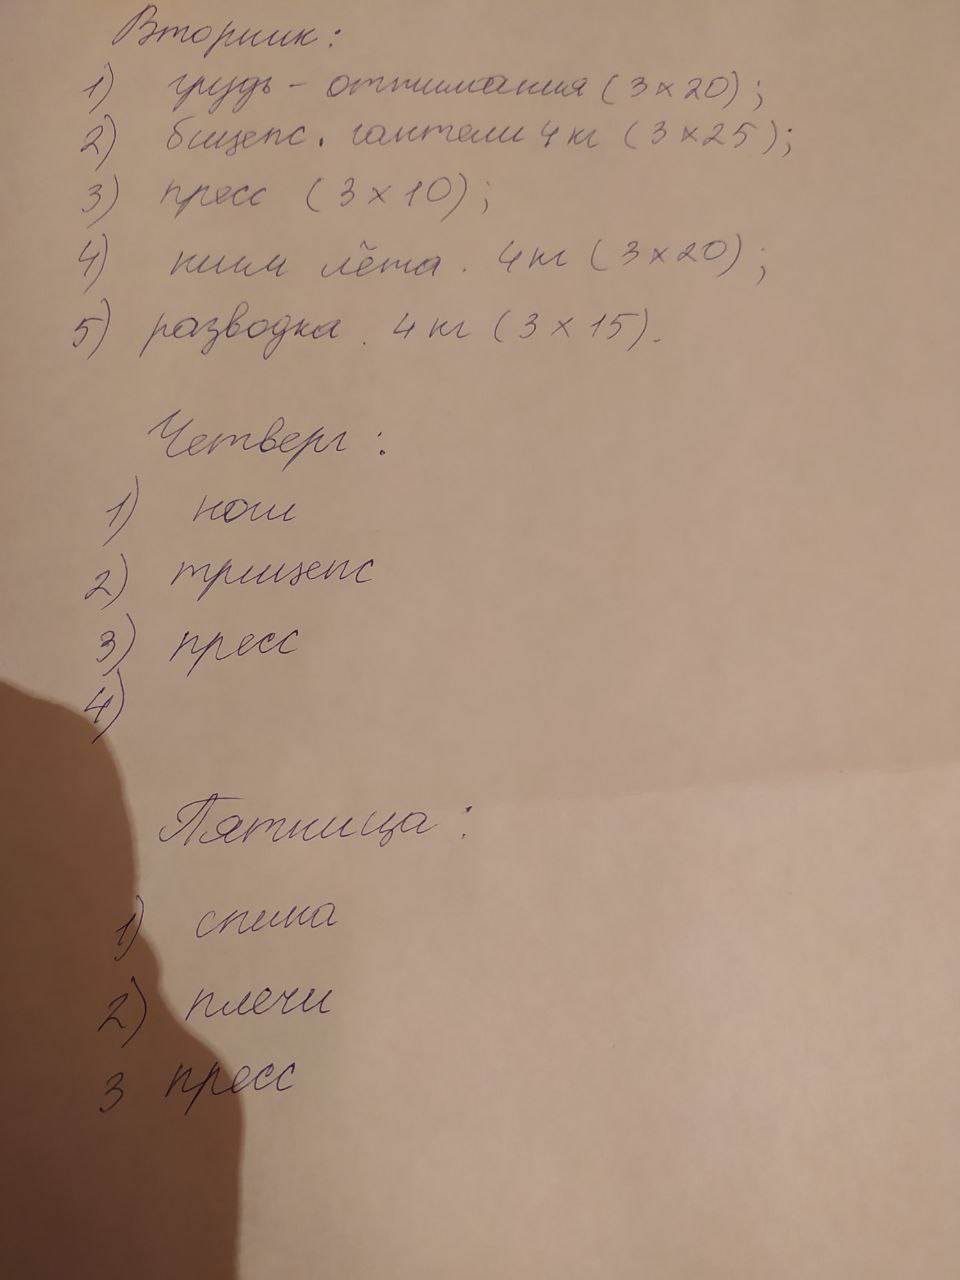 Вторник:
1) грудь - отжимания (3×20);
2) бицепс. гантели 4 кг (3×25);
3) пресс (3×10);
4) жим лёжа. 4 кг (3×20);
5) разводка. 4 кг (3×15).
Четверг:
1) ноги
2) трицепс
3) пресс
4)
Пятница:
1) спина
2) плечи
3 пресс